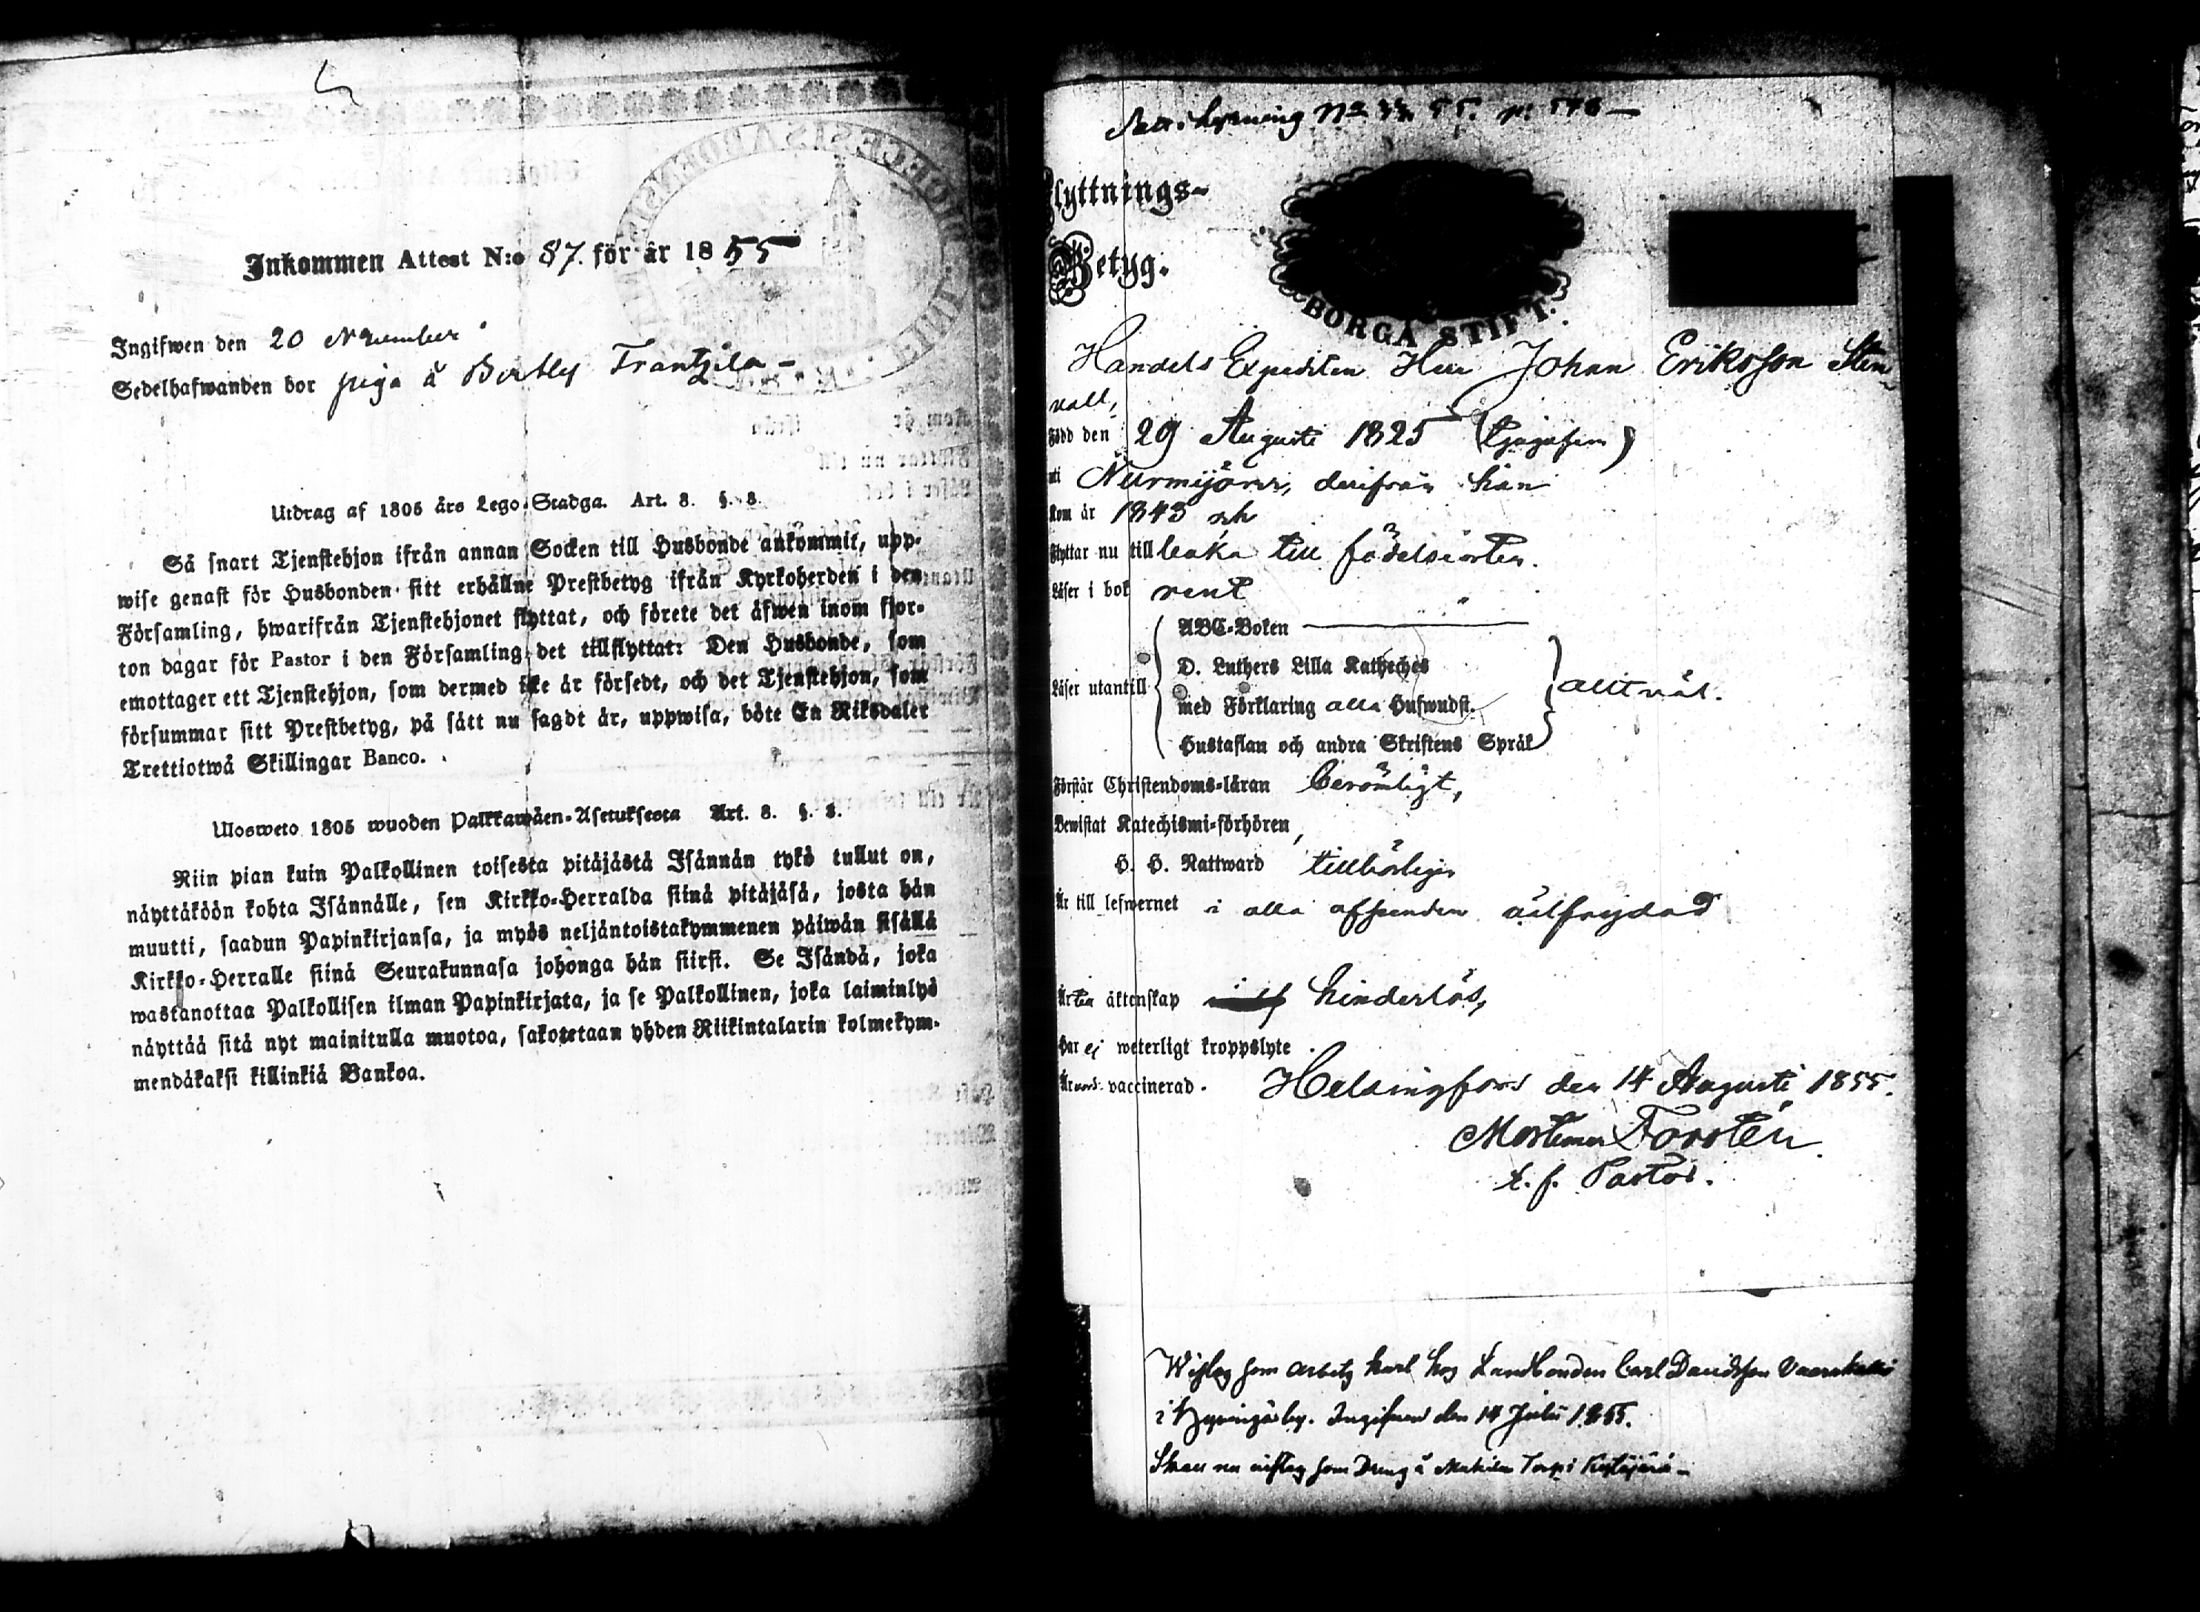 Inkommen Attest N:o 87. för år 1855
Ingifwen den 20 November
Sedelhafwanden bor piga å Frantzila
Utdrag af 1805 års Lego-Stadga. Art. 8. §. 8.
Så snart Tjenstehjon ifrån annan Socken till Husbonde ankommit, upp-
wise genast för Husbonden sitt erhållne Prestbetyg ifrån Kyrkoherden i den
Församling, hwarifrån Tjenstehjonet flyttat, och förete det äfwen inom fjor-
ton dagar för Pastor i den Församling det tillflyttat: Den Husbonde, som
emottager ett Tjenstehjon, som dermed icke är försedt, och det Tjenstehjon, som
försummar sitt Prestbetyg, på sätt nu sagdt är, uppwisa, böte En Riksdaler
Trettiotwå Skillingar Banco.
Ulosweto 1805 wuoden Palkkawäen-Asetuksesta Art. 8. §. 8.
Niin pian kuin Palkollinen toisesta pitäjästä Isännän tykö tullut on,
näyttäköön kohta Isännälle, sen Kirkko-Herralda siinä pitäjäsä, josta hän
muutti, saadun Papinkirjansa, ja myös neljäntoistakymmenen päiwän sisällä
Kirkko-Herralle siinä Seurakunnasa johonga hän siirst. Se Isändä, joka
wastanottaa Palkollisen ilman Papinkirjata, ja se Palkollinen, joka laiminlyö
näyttää sitä nyt mainitulla muotoa, sakotetaan yhden Riikintalarin kolmekym-
mendäkaksi killinkiä Bankoa.
55. p. 576
Flyttnings-
Betyg.
BORGÅ STIFT.
Handels Expediten Herr Johan Eriksson Sten-
vall,
Född den 29 Augusti 1825
uti Nurmijärvi, derifrån han
Kom år 1843 och
Flyttar nu tillbaka till födelseorten.
Läser i bok rent
ABC-Boken
D. Luthers Lilla Katheches
Läser utantill med Förklaring alla Hufwudst. allt väl.
Hustaflan och andra Skriftens Språk
Förstår Christendoms-läran berömligt,
Bewistat Katechismi-förhören,
H. H. Nattward tillbörligen
Är till lefwernet i alla afseenden välfrejdad
Är till äktenskap hinderlös,
Har ej weterligt kroppslyte.
Är vaccinerad. Helsingfors den 14 Augusti 1855.
Mortimer Forstén
t. f. Pastor.
som hos Landbonden Carl Davidsson
i by. Ingifwen den 14 Juli 1855.
Skall nu som Dräng å Torp i